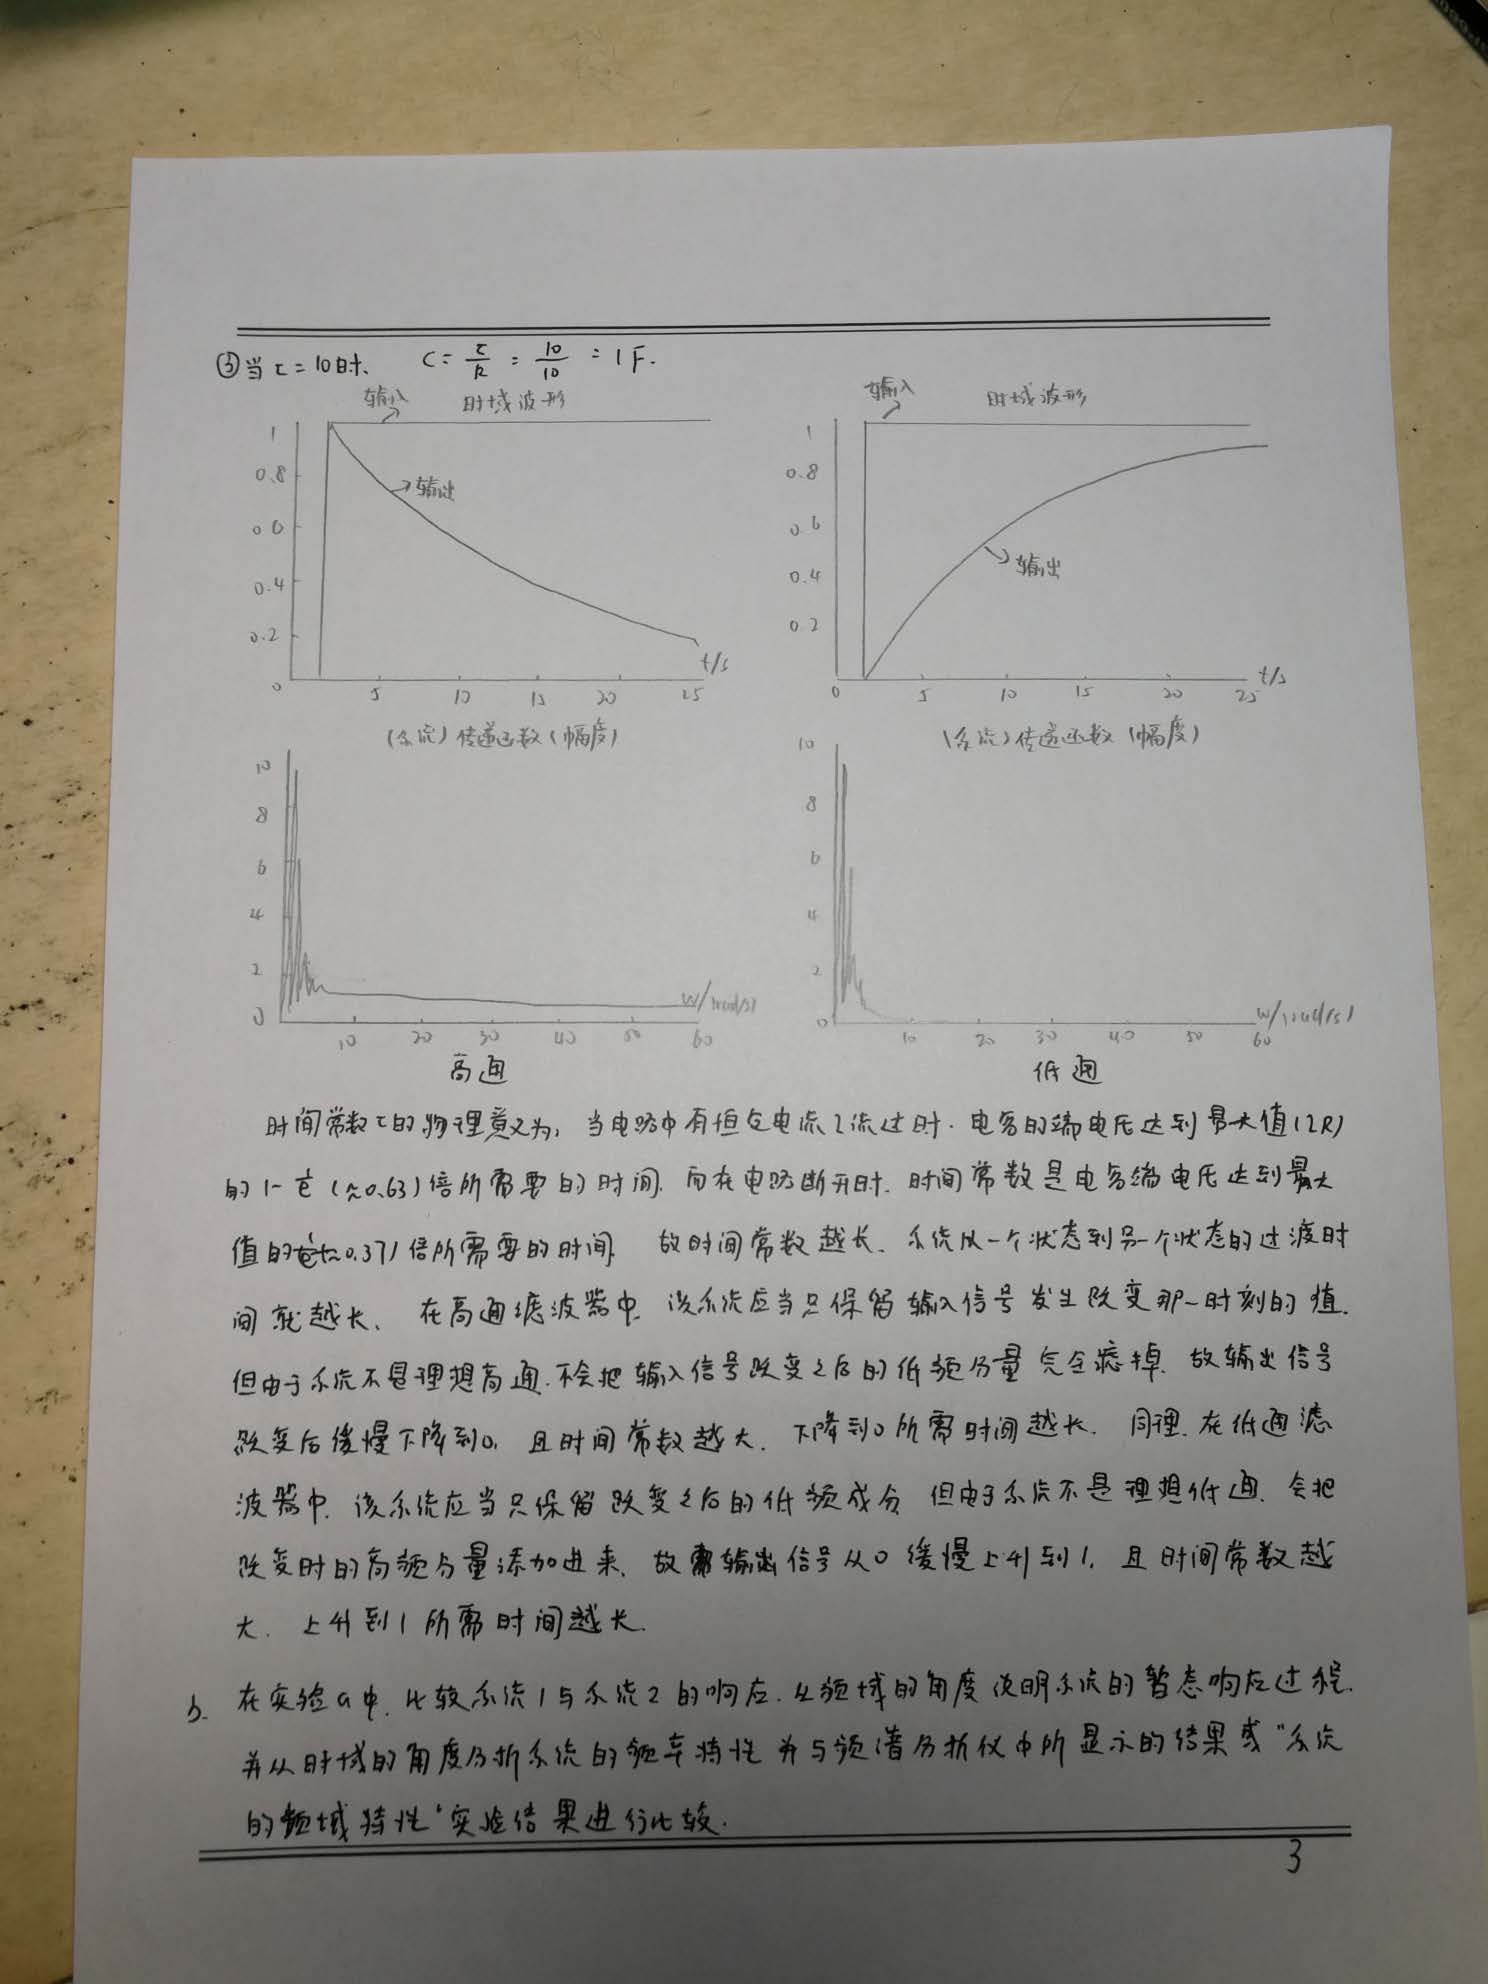 ③当τ=10时. C=τ/R=10/10=1F.
输入 时域波形
输入 时域波形
1
0.8
0.6
0.4
0.2
0 5 10 15 20 25
t/s
输出
1
0.8
0.6
0.4
0.2
0 5 10 15 20 25
t/s
输出
(系统)传递函数(幅度)
(系统)传递函数(幅度)
10
8
6
4
2
0
10 20 30 40 50 60
w/(rad/s)
10
8
6
4
2
0
10 20 30 40 50 60
w/(rad/s)
高通
低通
时间常数τ的物理意义为,当电路中有恒定电流I流过时.电容的端电压达到最大值(IR)
的1-1/e(≈0.63)倍所需要的时间.而在电路断开时.时间常数是电容端电压达到最大
值的1/e(≈0.37)倍所需要的时间. 故时间常数越长.系统从一个状态到另一个状态的过渡时
间就越长. 在高通滤波器中.该系统应当只保留输入信号发生改变那一时刻的值.
但由于系统不是理想高通.不会把输入信号改变之后的低频分量完全滤掉.故输出信号
改变后缓慢下降到0.且时间常数越大.下降到0所需时间越长.同理.在低通滤
波器中.该系统应当只保留改变之后的低频成分.但由于系统不是理想低通.会把
改变时的高频分量添加进来.故输出信号从0缓慢上升到1.且时间常数越
大.上升到1所需时间越长.
b. 在实验a中.比较系统1与系统2的响应.从频域的角度说明系统的暂态响应过程.
并从时域的角度分析系统的频率特性并与频谱分析仪中所显示的结果或"系统
的频域特性"实验结果进行比较.
3